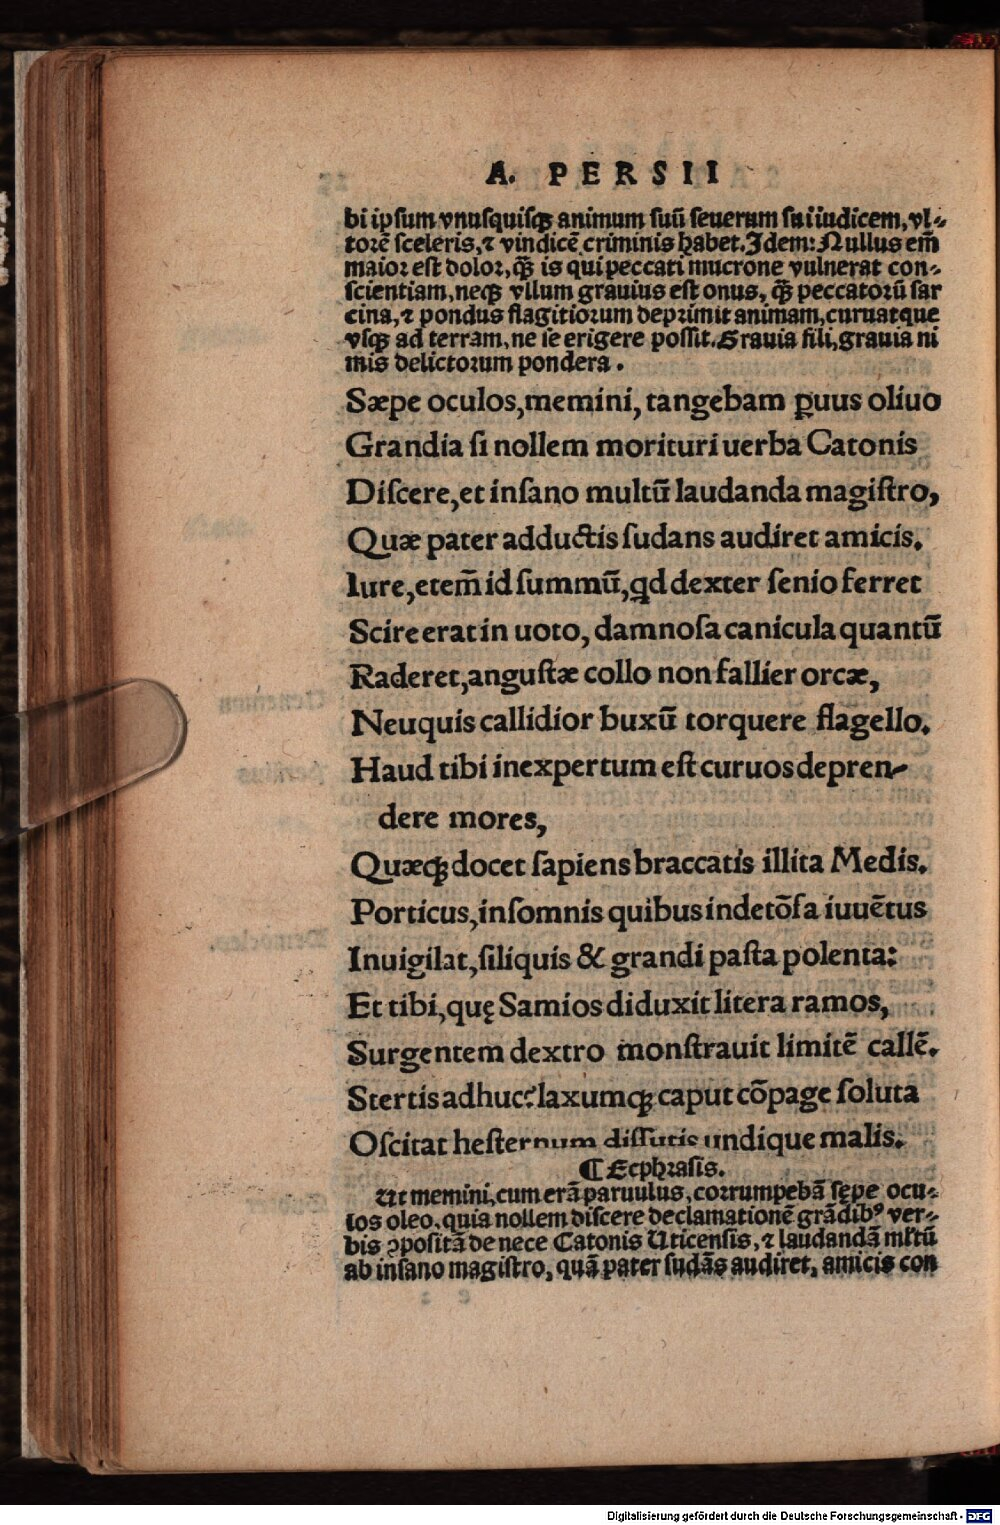 A. PERSII
bi ipsum vnusquisqꝫ animum suū seuerum sui iudicem, vl⸗
torē sceleris, ⁊ vindicē criminis habet. Idem: Nullus em̄
maior est dolor, q̄ꝫ is qui peccati mucrone vulnerat con⸗
scientiam, neqꝫ vllum grauius est onus, q̄ꝫ peccatorū sar
cina, ⁊ pondus flagitiorum deprimit animam, curuatque
vsqꝫ ad terram, ne se erigere possit. Grauia fili, grauia ni
mis delictorum pondera.
Sæpe oculos, memini, tangebam ꝑuus oliuo
Grandia si nollem morituri uerba Catonis
Discere, et insano multū laudanda magistro,
Quæ pater adductis sudans audiret amicis.
Iure, etem̄ id summū, qd dexter senio ferret
Scire erat in uoto, damnosa canicula quantū
Raderet, angustæ collo non fallier orcæ,
Neuquis callidior buxū torquere flagello.
Haud tibi inexpertum est curuos depren-
dere mores,
Quæqꝫ docet sapiens braccatis illita Medis.
Porticus, insomnis quibus indetōsa iuuētus
Inuigilat, siliquis & grandi pasta polenta:
Et tibi, quę Samios diduxit litera ramos,
Surgentem dextro monstrauit limitē callē.
Stertis adhuc? laxumqꝫ caput cōpage soluta
Oscitat hesternum dissutis undique malis.
¶ Ecphrasis.
Ut memini, cum erā paruulus, corrumpebā sępe ocu⸗
los oleo, quia nollem discere declamationē grādibꝰ ver⸗
bis ꝯpositā de nece Catonis Uticensis, ⁊ laudandā ml̄tū
ab insano magistro, quā pater sudās audiret, amicis con
Digitalisierung gefördert durch die Deutsche Forschungsgemeinschaft - DFG